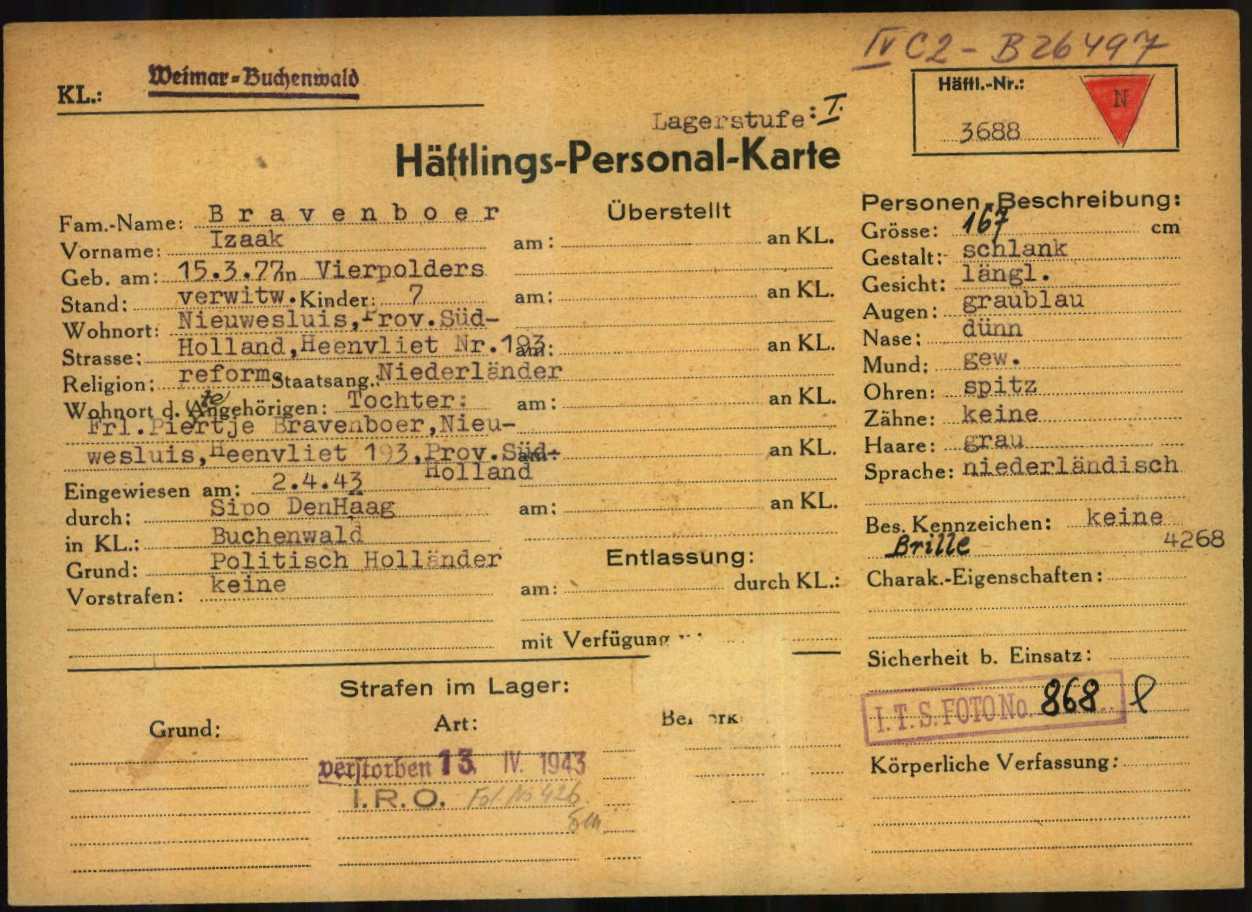 IV C2 - B 26497
KL.: Weimar-Buchenwald
Häftl.-Nr.:
N
3688
Lagerstufe: I.
Häftlings-Personal-Karte
Fam.-Name: Bravenboer
Vorname: Izaak
Geb. am: 15.3.77 in Vierpolders
Stand: verwitw. Kinder: 7
Wohnort: Nieuwesluis, Prov. Süd-
Strasse: Holland, Heenvliet Nr. 193
Religion: reform. Staatsang.: Niederländer
Wohnort d. Angehörigen: Tochter:
Frl. Piertje Bravenboer, Nieu-
wesluis, Heenvliet 193, Prov. Süd-
Holland
Eingewiesen am: 2.4.43
durch: Sipo DenHaag
in KL.: Buchenwald
Grund: Politisch Holländer
Vorstrafen: keine
Überstellt
am: an KL.
am: an KL.
am: an KL.
am: an KL.
am: an KL.
am: an KL.
Entlassung:
am: durch KL.:
mit Verfügung
Personen-Beschreibung:
Grösse: 167 cm
Gestalt: schlank
Gesicht: längl.
Augen: graublau
Nase: dünn
Mund: gew.
Ohren: spitz
Zähne: keine
Haare: grau
Sprache: niederländisch
Bes. Kennzeichen: keine
Brille 4268
Charak.-Eigenschaften:
Sicherheit b. Einsatz:
I.T.S. FOTO No. 868
Körperliche Verfassung:
Strafen im Lager:
Grund: Art:
verstorben 13. IV. 1943
I.R.O. Fol. No 426